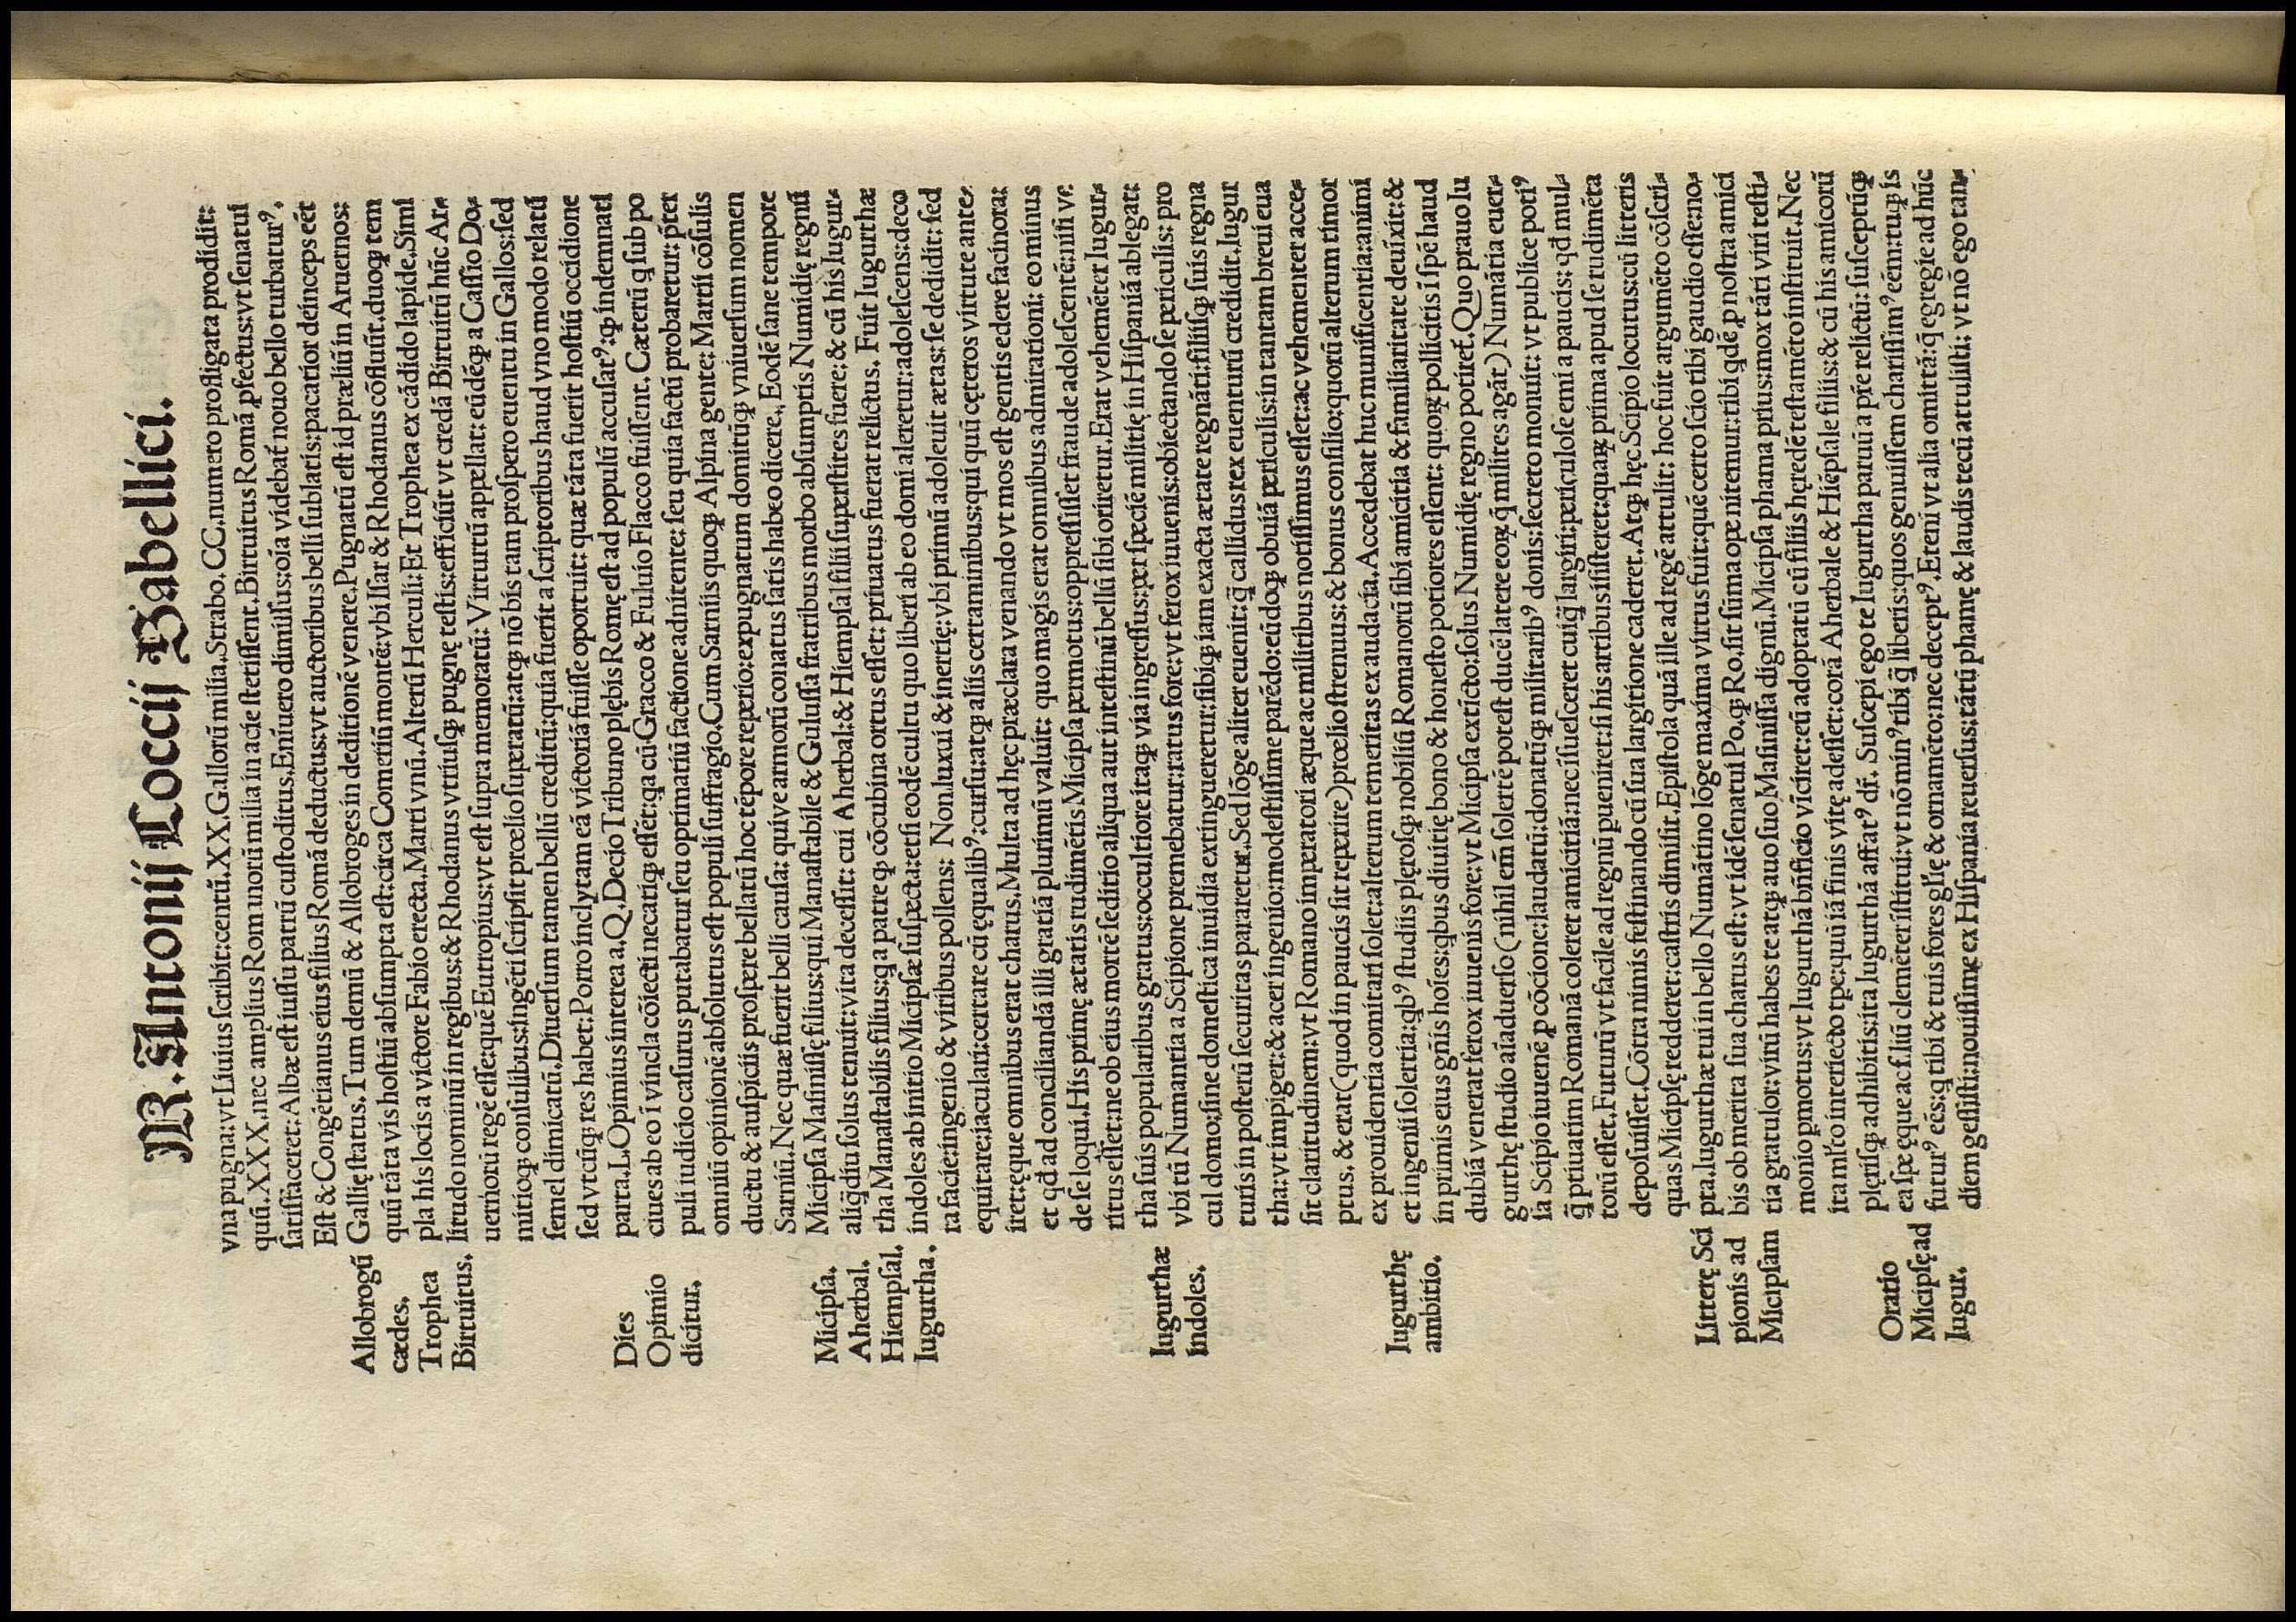 M. Antonij Coccij Sabellici.
vna pugna: vt Liuius ſcribit: centũ. XX. Gallorũ milia. Strabo. CC. numero profligata prodidit:
quũ. XXX. nec amplius Romanorũ milia in acie ſtetiſſent. Birtuitus Romã ꝓfectus: vt ſenatui
ſatiſfaceret: Albæ eſt iuſſu patrũ cuſtoditus. Eniuero dimiſſus: oĩa videbat̃ nouo bello turbatur⁹.
Eſt & Congẽtianus eius filius Romã deductus: vt auctoribus belli ſublatis: pacatior deinceps eẽt
Gallię ſtatus. Tum demũ & Allobroges in deditionẽ venere. Pugnatũ eſt id præliũ in Aruernos:
quũ tãta vis hoſtiũ abſumpta eſt: circa Comeniũ montẽ: vbi Iſar & Rhodanus cõfluũt. duoꝙ tem
pla his locis a victore Fabio erecta. Marti vnũ. Alterũ Herculi: Et Trophea ex cãdido lapide. Simi
litudo nominũ in regibus: & Rhodanus vtriuſꝙ pugnę teſtis: efficiũt vt credã Birtuitũ hũc Ar⸗
uernorũ regẽ eſſe: quẽ Eutropius: vt eſt ſupra memoratũ: Virturtũ appellat: eũdẽꝙ a Caſſio Do⸗
mitioꝙ conſulibus: ingẽti ſcripſit prœlio ſuperatũ: atꝙ nõ bis tam proſpero euentu in Gallos: ſed
ſemel dimicatũ. Diuerſum tamen bellũ creditũ: quia fuerit a ſcriptoribus haud vno modo relatũ
ſed vtcũꝙ res habet: Porro inclytam eã victoriã fuiſſe oportuit: quæ tãta fuerit hoſtiũ occidione
parta. L. Opimius interea a. Q. Decio Tribuno plębis Romę eſt ad populũ accuſat⁹: ꝙ indemnati
ciues ab eo ĩ vincla cõiecti necatiꝙ eſſẽt: qa cũ Gracco & Fuluio Flacco fuiſſent. Cæterũ q̃ ſub po
puli iudicio caſurus putabatur ſeu optimatiũ factione adnitente: ſeu quia factũ probaretur: p̃ter
omniũ opinionẽ abſolutus eſt populi ſuffragio. Cum Sarniis quoꝙ Alpina gente: Martii cõſulis
ductu & auſpiciis proſpere bellatũ hoc tẽpore reperio: expugnatum domitũꝙ vniuerſum nomen
Sarniũ. Nec quæ fuerit belli cauſa: quiue armorũ conatus ſatis habeo dicere. Eodẽ ſane tempore
Micipſa Maſiniſſę filius: qui Manaſtabile & Guluſſa fratribus morbo abſumptis Numidię regnũ
aliq̃diu ſolus tenuit: vita deceſſit: cui Aherbal: & Hiempſal filii ſuperſtites fuere: & cũ his Iugur⸗
tha Manaſtabilis filius: qa patre ꝙ cõcubina ortus eſſet: priuatus fuerat relictus. Fuit Iugurthæ
indoles ab initio Micipſæ ſuſpecta: etſi eodẽ cultu quo liberi ab eo domi aleretur: adoleſcens: deco
ra facie: ingenio & viribus pollens: Non luxui & inertię: vbi primũ adoleuit ætas: ſe dedidit: ſed
equitare: iaculari: certare cũ ęqualib⁹: curſu: atꝙ aliis certaminibus: qui quũ cęteros virtute ante⸗
iret: ęque omnibus erat charus. Multa ad hęc præclara venando vt mos eſt gentis edere facinora:
et qđ ad conciliandã illi gratiã plurimũ valuit: quo magis erat omnibus admirationi: eo minus
de ſe loqui. His primę ætatis rudimẽtis Micipſa permotus: oppreſſiſſet fraude adoleſcentẽ: niſi ve
ritus eſſet: ne ob eius mortẽ ſeditio aliqua aut inteſtinũ bellũ ſibi oriretur. Erat vehemẽter Iugur⸗
tha ſuis popularibus gratus: occultiore itaꝙ via ingreſſus: per ſpeciẽ militię in Hiſpaniã ablegat:
vbi tũ Numantia a Scipione premebatur: ratus fore: vt ferox iuuenis: obiectando ſe periculis: pro
cul domo: ſine domeſtica inuidia extingueretur: ſibiꝙ iam exacta ætate regnãti: filiiſꝙ ſuis regna
turis in poſterũ ſecuritas pararetur. Sed lõge aliter euenit: q̃ callidus rex euenturũ credidit. Iugur
tha: vt impiger: & acer ingenio: modeſtiſſime parẽdo: eũdoꝙ obuiã periculis: in tantam breui eua
ſit claritudinem: vt Romano imperatori æque ac militibus notiſſimus eſſet: ac vehementer acce⸗
ptus. & erat (quod in paucis ſit reperire) prœlio ſtrenuus: & bonus conſilio: quorũ alterum timor
ex prouidentia comitari ſolet: alterum temeritas ex audacia. Accedebat huc munificentia: animi
et ingenii ſolertia: qb⁹ ſtudiis plęroſꝙ nobiliũ Romanorũ ſibi amicitia & familiaritate deuĩxit: &
in primis eius gñis hoĩes: qbus diuitię bono & honeſto potiores eſſent: quoꝝ pollicitis ĩ ſpẽ haud
dubiã venerat ferox iuuenis fore: vt Micipſa exticto: ſolus Numidię regno potiret̃. Quo prauo Iu
gurthę ſtudio aĩaduerſo (nihil em̃ ſolertẽ poteſt ducẽ latere eoꝝ q̃ milites agãt) Numãtia euer⸗
ſa Scipio iuuenẽ ꝓ cõcione: laudatũ: donatũꝙ militarib⁹ donis: ſecreto monuit: vt publice poti⁹
q̃ priuatim Romanã coleret amicitiã: nec iſueſceret cuiq̃ largiri: periculoſe emi a paucis: qđ mul⸗
torũ eſſet. Futurũ vt facile ad regnũ pueniret: ſi his artibus iſiſteret: quaꝝ prima apud ſe rudimẽta
depoſuiſſet. Cõtra nimis feſtinando cũ ſua largitione caderet. Atꝙ hęc Scipio locutus: cũ litteris
quas Micipſę redderet: caſtris dimiſit. Epiſtola quã ille ad regẽ attulit: hoc fuit argumẽto cõſcri⸗
pta. Iugurthæ tui in bello Numãtino lõge maxima virtus fuit: quẽ certo ſcio tibi gaudio eſſe: no⸗
bis ob merita ſua charus eſt: vt idẽ ſenatui Po. ꝙ Ro. ſit ſũma ope nitemur: tibi qdẽ ꝓ noſtra amici
tia gratulor: virũ habes te atꝙ auo ſuo Maſiniſſa dignũ. Micipſa phama prius: mox tãti viri teſti⸗
monio pmotus: vt Iugurthã bñficio vĩciret: eũ adoptatũ cũ filiis hęredẽ teſtamẽto inſtituit. Nec
ita ml̃to interiecto tpe: quũ iã finis vitę adeſſet: corã Aherbale & Hiẽpſale filiis: & cũ his amicorũ
plęriſꝙ adhibitis: ita Iugurthã affat⁹ dr̃. Suſcepi ego te Iugurtha paruũ a pr̃e relictũ: ſuſceptũꝙ
ea ſpe ęque ac ſ. liũ clemẽter iſtitui: vt nõ min⁹ tibi q̃ liberis: quos genuiſſem chariſſim⁹ eẽm: tuꝙ is
futur⁹ eẽs: q tibi & tuis fores gl̃ię & ornamẽto: nec decept⁹. Eteni vt alia omittã: q̃ egregie ad hũc
diem geſſiſti: nouiſſime ex Hiſpania reuerſus: tãtũ phamę & laudis tecũ attuliſti: vt nõ ego tan⸗
Allobrogũ
cædes.
Trophea
Birtuitus.
Dies
Opimio
dicitur.
Micipſa.
Aherbal.
Hiempſal.
Iugurtha.
Iugurthæ
indoles.
Iugurthę
ambitio.
Litterę Sci
pionis ad
Micipſam
Oratio
Micipſę ad
Iugur.